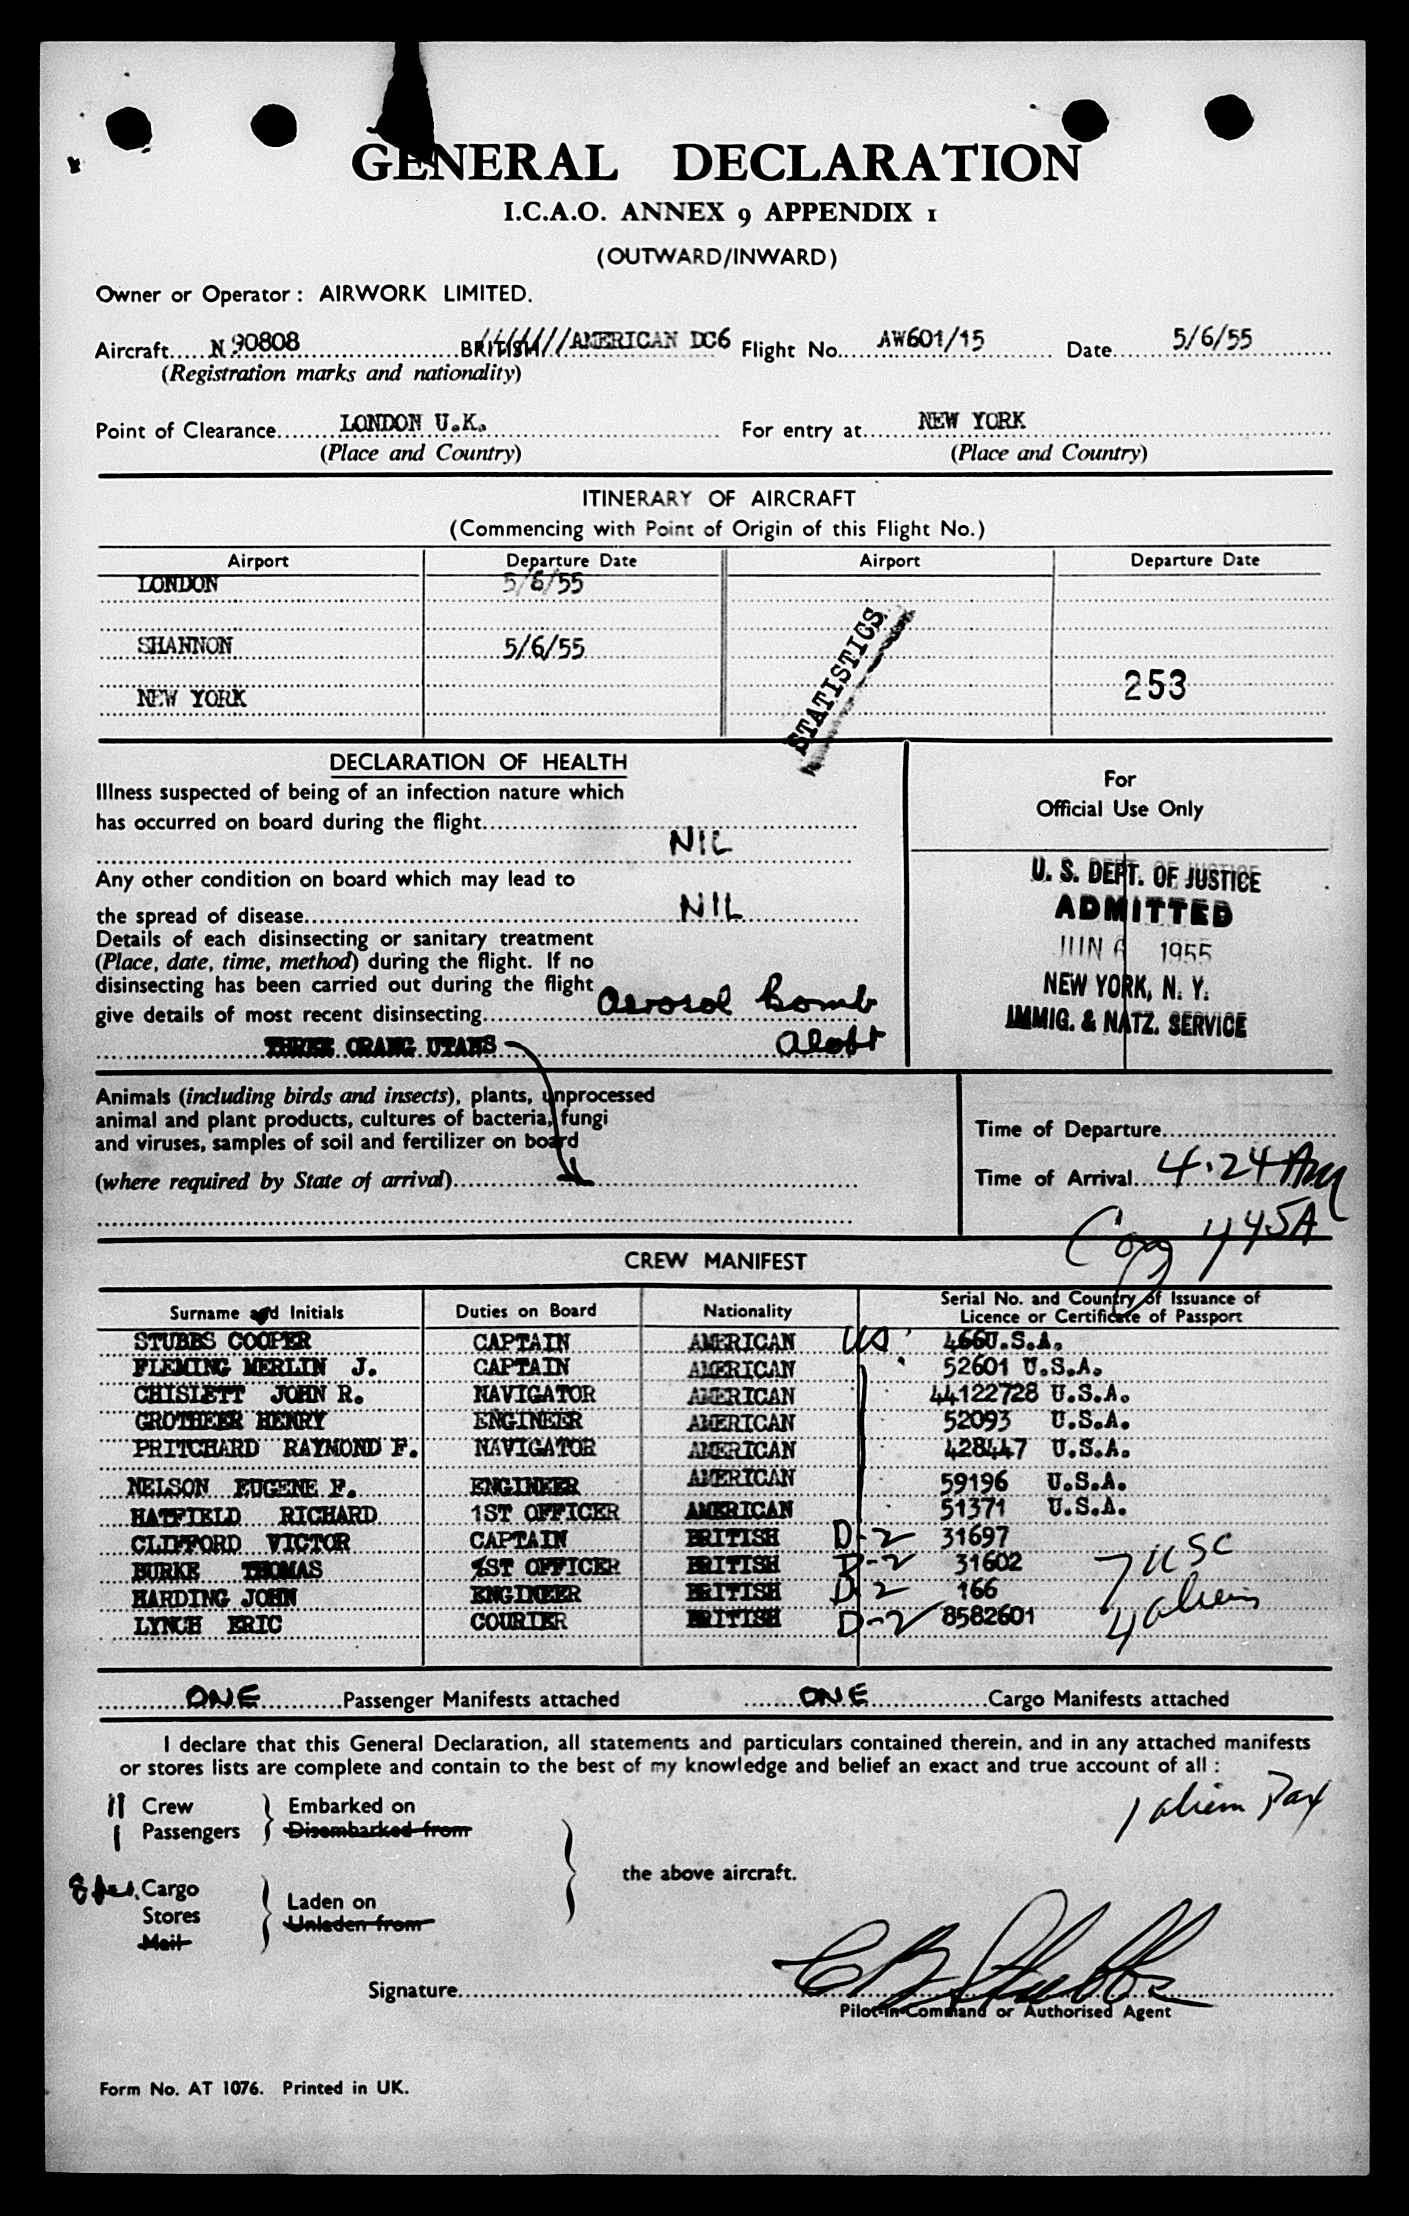 GENERAL DECLARATION
I.C.A.O. ANNEX 9 APPENDIX 1
(OUTWARD/INWARD)
Owner or Operator : AIRWORK LIMITED.
Aircraft.....N 90808 BRITISH///////AMERICAN DC6 Flight No. AW601/15 Date 5/6/55
(Registration marks and nationality)
Point of Clearance LONDON U.K. For entry at NEW YORK
(Place and Country) (Place and Country)
ITINERARY OF AIRCRAFT
(Commencing with Point of Origin of this Flight No.)
Airport Departure Date Airport Departure Date
LONDON 5/6/55
SHANNON 5/6/55
NEW YORK
STATISTICS
253
DECLARATION OF HEALTH
Illness suspected of being of an infection nature which
has occurred on board during the flight
NIL
Any other condition on board which may lead to
the spread of disease NIL
Details of each disinsecting or sanitary treatment
(Place, date, time, method) during the flight. If no
disinsecting has been carried out during the flight
give details of most recent disinsecting Aerosol Bomb
THREE ORANG UTANS Aloft
For
Official Use Only
U. S. DEPT. OF JUSTICE
ADMITTED
JUN 6 1955
NEW YORK, N. Y.
IMMIG. & NATZ. SERVICE
Animals (including birds and insects), plants, unprocessed
animal and plant products, cultures of bacteria, fungi
and viruses, samples of soil and fertilizer on board
(where required by State of arrival)
Time of Departure
Time of Arrival 4.24 AM
445A
CREW MANIFEST
Surname and Initials Duties on Board Nationality Serial No. and Country of Issuance of
Licence or Certificate of Passport
STUBBS COOPER CAPTAIN AMERICAN US 466U.S.A.
FLEMING MERLIN J. CAPTAIN AMERICAN 52601 U.S.A.
CHISLETT JOHN R. NAVIGATOR AMERICAN 44122728 U.S.A.
GROTHEER HENRY ENGINEER AMERICAN 52093 U.S.A.
PRITCHARD RAYMOND F. NAVIGATOR AMERICAN 428447 U.S.A.
NELSON EUGENE F. ENGINEER AMERICAN 59196 U.S.A.
HATFIELD RICHARD 1ST OFFICER AMERICAN 51371 U.S.A.
CLIFFORD VICTOR CAPTAIN BRITISH D-2 31697
BURKE THOMAS 1ST OFFICER BRITISH D-2 31602
HARDING JOHN ENGINEER BRITISH D-2 166
LYNCH ERIC COURIER BRITISH D-2 8582601
7 USC
4 aliens
ONE Passenger Manifests attached ONE Cargo Manifests attached
I declare that this General Declaration, all statements and particulars contained therein, and in any attached manifests
or stores lists are complete and contain to the best of my knowledge and belief an exact and true account of all :
11 Crew Embarked on
1 Passengers Disembarked from
1 alien Pax
the above aircraft.
Cargo Laden on
Stores Unladen from
Mail
Signature C B Stubbs
Pilot-in-Command or Authorised Agent
Form No. AT 1076. Printed in UK.